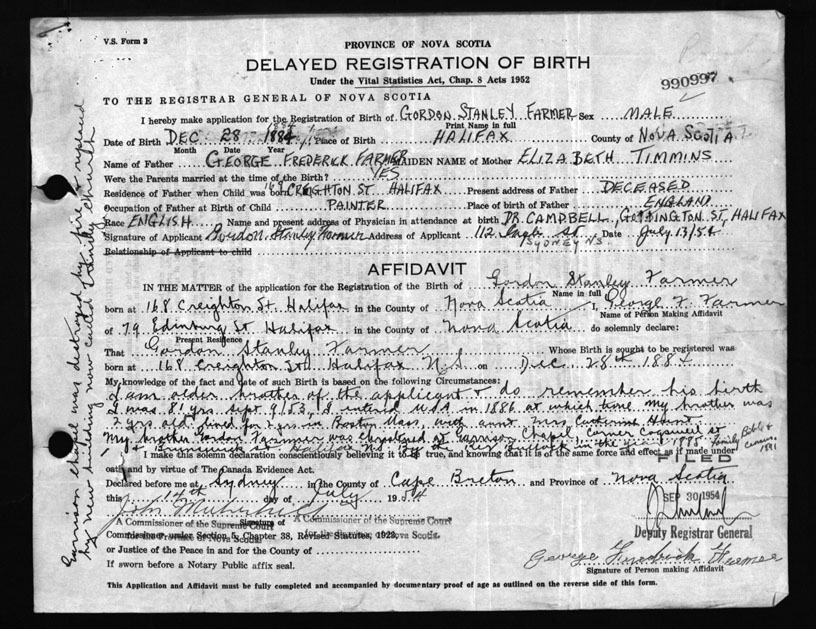 V.S. Form 3
PROVINCE OF NOVA SCOTIA
DELAYED REGISTRATION OF BIRTH
Under the Vital Statistics Act, Chap. 8 Acts 1952
990997
TO THE REGISTRAR GENERAL OF NOVA SCOTIA
I hereby make application for the Registration of Birth of GORDON STANLEY FARMER Sex MALE
Print Name in full
Date of Birth DEC 28 1884 Place of Birth HALIFAX County of NOVA SCOTIA
Month Date Year
Name of Father GEORGE FREDERICK FARMER MAIDEN NAME of Mother ELIZABETH TIMMINS
Were the Parents married at the time of the Birth? YES
Residence of Father when Child was born 168 CREIGHTON ST HALIFAX Present address of Father DECEASED
Occupation of Father at Birth of Child PAINTER Place of birth of Father ENGLAND
Race ENGLISH Name and present address of Physician in attendance at birth DR. CAMPBELL, GOTTINGTON ST, HALIFAX
Signature of Applicant Gordon Stanley Farmer Address of Applicant 112 St Date July 13/54
SYDNEY NS
Relationship of Applicant to child
AFFIDAVIT
IN THE MATTER of the application for the Registration of the Birth of Gordon Stanley Farmer
Name in full
born at 168 Creighton St Halifax in the County of Nova Scotia I, George F. Farmer
Name of Person Making Affidavit
of 79 Edinburg St Halifax in the County of Nova Scotia do solemnly declare:
Present Residence
That Gordon Stanley Farmer Whose Birth is sought to be registered was
born at 168 Creighton St Halifax N.S. on Dec. 28th 1884
My knowledge of the fact and date of such Birth is based on the following Circumstances:
I am older brother of the applicant & do remember his birth
I was 81 yrs. Sept 9/53, I entered USA in 1886 at which time my brother was
2 yrs old lived for 2 yrs in Boston Mass, with aunt Mrs Catherine
My brother Gordon Farmer was christened at Garrison Chapel corner Cogswell st
& Brunswick Halifax N.S. in the year 1885 family Bible & census 1891
I make this solemn declaration conscientiously believing it to be true, and knowing that it is of the same force and effect as if made under
oath and by virtue of The Canada Evidence Act.
FILED
Declared before me at Sydney in the County of Cape Breton and Province of Nova Scotia
this 14th day of July 1954
SEP 30 1954
A Commissioner of the Supreme Court
Signature of
A Commissioner of the Supreme Court
Commissioner under Section 5, Chapter 38, Revised Statutes, 1923,
in the Province of Nova Scotia
Deputy Registrar General
or Justice of the Peace in and for the County of
If sworn before a Notary Public affix seal.
George Fredrick Farmer
Signature of Person making Affidavit
This Application and Affidavit must be fully completed and accompanied by documentary proof of age as outlined on the reverse side of this form.
Garrison chapel was destroyed by fire & replaced
by new building now called Trinity church